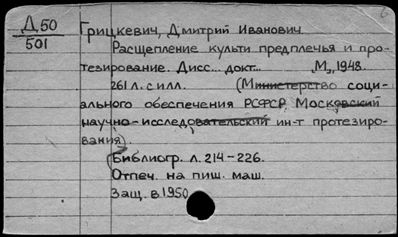 Д50
501
Грицкевич, Дмитрий Иванович.
Расщепление культи предплечья и про-
тезирование. Дисс... докт... М., 1948.
261 л. с илл. (Министерство соци-
ального обеспечения РСФСР. Московский
научно-исследовательский ин-т протезиро-
вания).
Библиогр. л. 214-226.
Отпеч. на пиш. маш.
Защ. в 1950